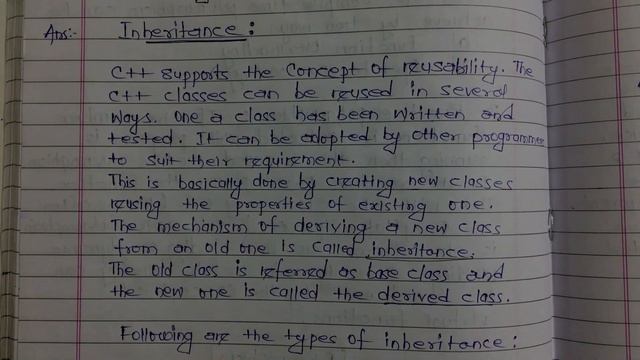 Ans:- Inheritance :
C++ supports the concept of reusability. The
C++ classes can be reused in several
ways. One a class has been written and
tested. It can be adopted by other programmer
to suit their requirement.
This is basically done by creating new classes
reusing the properties of existing one.
The mechanism of deriving a new class
from an old one is called inheritance.
The old class is referred as base class and
the new one is called the derived class.
Following are the types of inheritance :